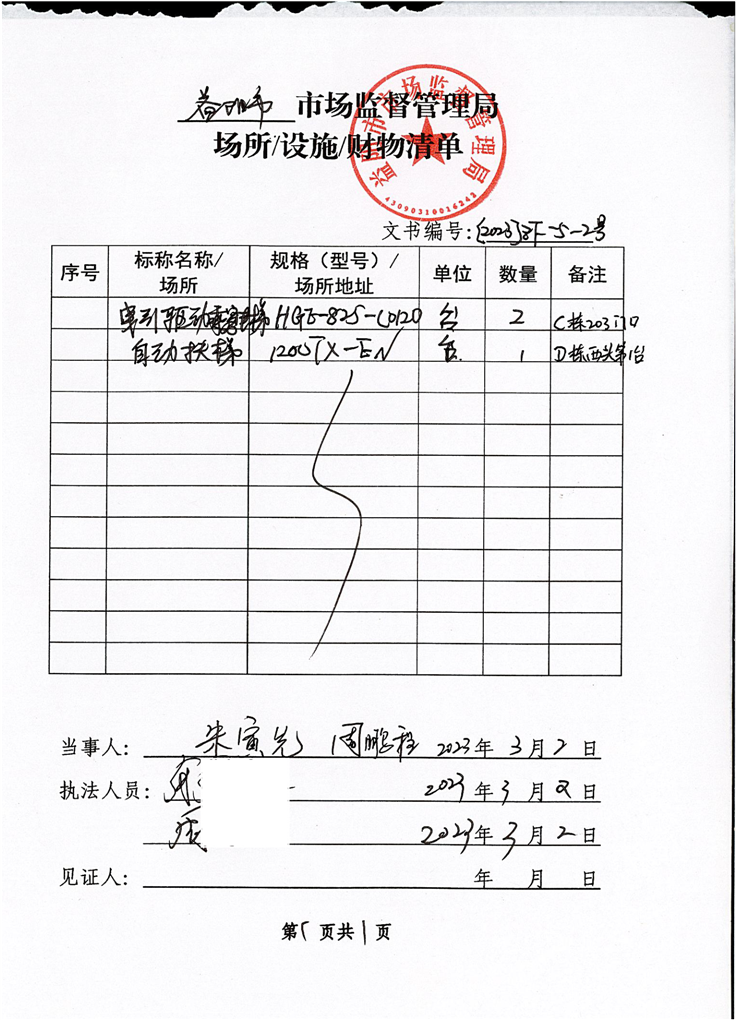 益阳市 市场监督管理局
场所/设施/财物清单
益阳市市场监督管理局
43090310016242
文书编号:[2023]3F-5-2号
序号 标称名称/场所 规格（型号）/场所地址 单位 数量 备注
曳引驱动乘客电梯 HGE-825-CO120 台 2 C栋203门口
自动扶梯 1200TX-EN 台 1 D栋西头第1台
当事人: 朱寅光 周鹏程 2023年3月2日
执法人员: 2023年3月2日
2023年3月2日
见证人: 年 月 日
第1页共1页